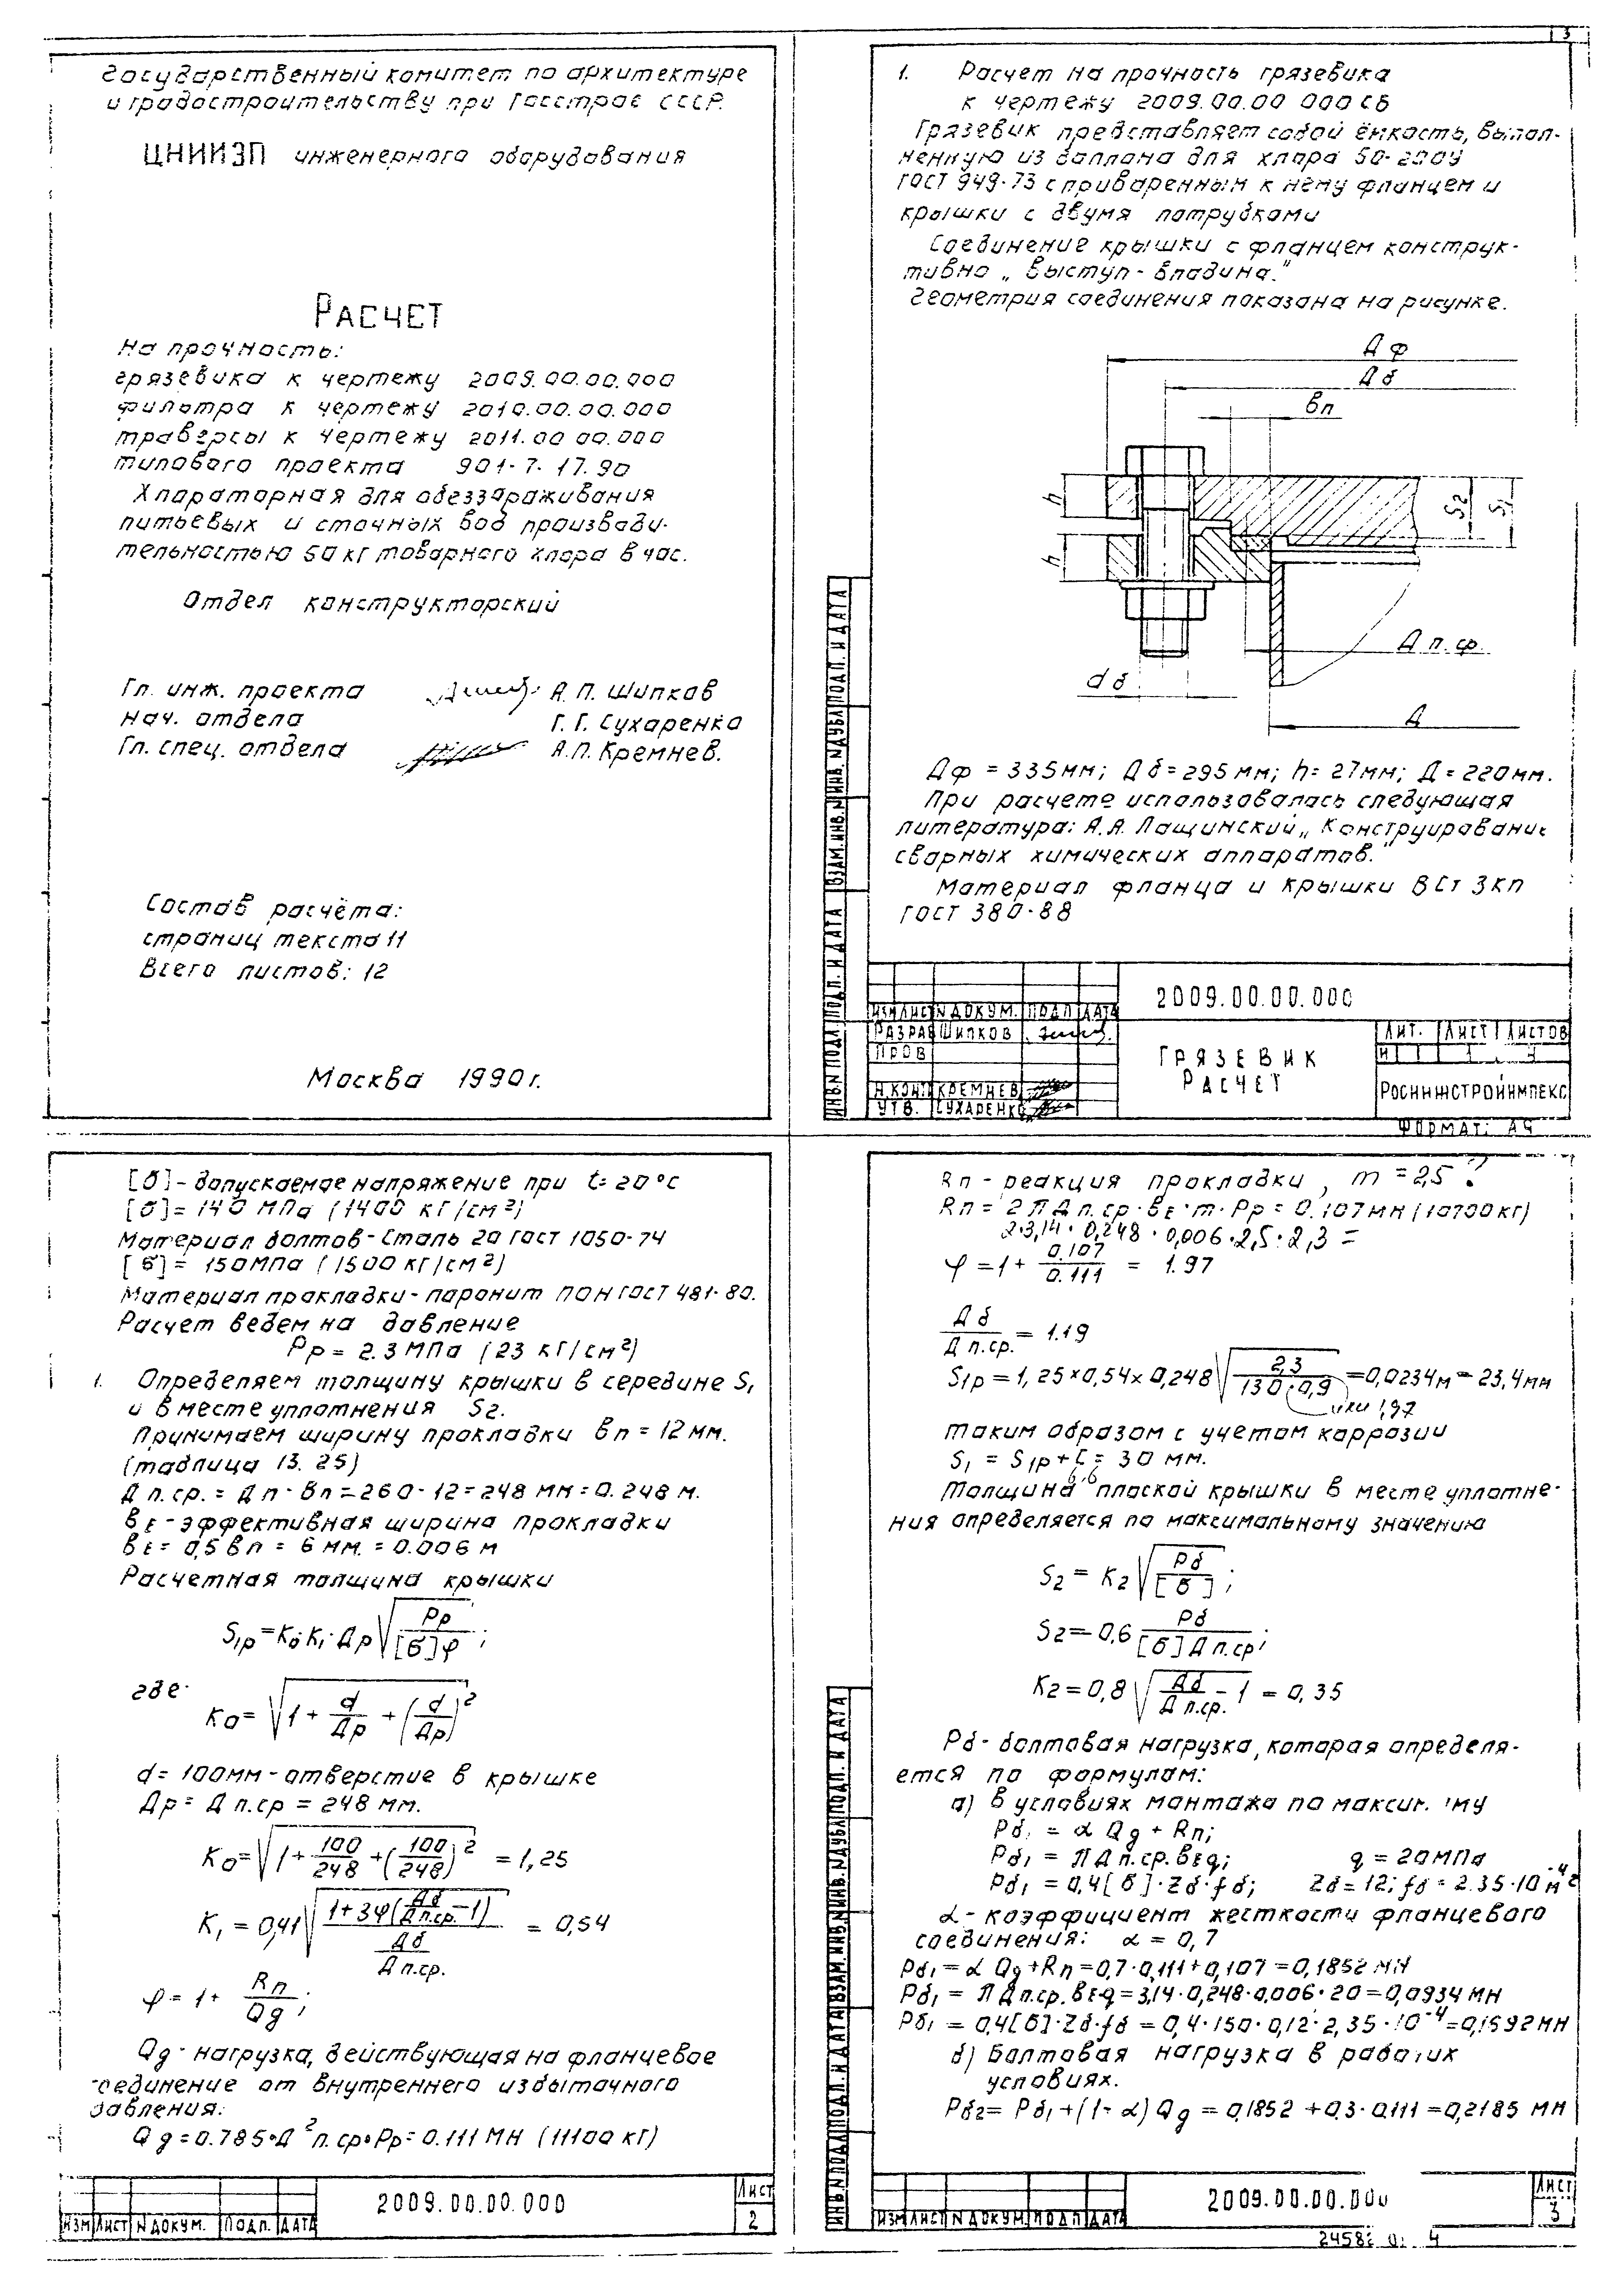 Государственный комитет по архитектуре
и градостроительству при Госстрое СССР.
ЦНИИЭП инженерного оборудования
РАСЧЕТ
На прочность:
грязевика к чертежу 2009.00.00.000
фильтра к чертежу 2010.00.00.000
траверсы к чертежу 2011.00 00.000
типового проекта 901-7-17.90
Хлораторная для обеззараживания
питьевых и сточных вод производи-
тельностью 50 кг товарного хлора в час.
Отдел конструкторский
Гл. инж. проекта А.П. Шипков
Нач. отдела Г.Г. Сухаренко
Гл. спец. отдела А.П. Кремнев.
Состав расчёта:
страниц текста 11
Всего листов: 12
Москва 1990г.
3
1. Расчет на прочность грязевика
к чертежу 2009.00.00 000 СБ
Грязевик представляет собой ёмкость, выпол-
ненную из баллона для хлора
ГОСТ 949-73 с приваренным к нему фланцем и
крышки с двумя патрубками
Соединение крышки с фланцем конструк-
тивно „Выступ - впадина."
Геометрия соединения показана на рисунке.
Дф
Дб
вп
h
S2
S1
h
Дп.ф.
dб
Д
Дф = 335мм; Дб = 295 мм; h = 27мм; Д = 220мм.
При расчете использовалась следующая
литература: А.А. Лащинский „Конструирование
сварных химических аппаратов."
Материал фланца и крышки ВСт 3кп
ГОСТ 380-88
2009.00.00.000
ИЗМ ЛИСТ N ДОКУМ. ПОДП ДАТА
РАЗРАБ ШИПКОВ
ПРОВ
Н.КОНТ КРЕМНЕВ
УТВ. СУХАРЕНКО
ГРЯЗЕВИК
РАСЧЕТ
ЛИТ. ЛИСТ ЛИСТОВ
И 1
РОСИНЖСТРОЙИМПЕКС
ФОРМАТ: А4
ИНВ.N ПОДЛ. ПОДП. И ДАТА ВЗАМ.ИНВ.N ИНВ. N ДУБЛ ПОДП. И ДАТА
[б] - допускаемое напряжение при t = 20°C
[б] = 140 МПа (1400 кг/см²)
Материал болтов - Сталь 20 ГОСТ 1050-74
[б] = 150МПа (1500 кг/см²)
Материал прокладки - паронит ПОН ГОСТ 481-80.
Расчет ведем на давление
Рр = 2.3 МПа (23 кг/см²)
1. Определяем толщину крышки в середине S1
и в месте уплотнения S2.
Принимаем ширину прокладки вп = 12 мм.
(таблица 13. 25)
Д п.ср. = Дп - вп = 260 - 12 = 248 мм = 0.248 м.
вЕ - эффективная ширина прокладки
вЕ = 0,5 вп = 6 мм. = 0.006 м
Расчетная толщина крышки
S1р = К0·К1·Др √(Рр / [б]φ);
где·
К0 = √(1 + d/Др + (d/Др)²)
d = 100мм - отверстие в крышке
Др = Д п.ср = 248 мм.
К0 = √(1 + 100/248 + (100/248)²) = 1,25
К1 = 0,41 √((1+3φ(Дб/Дп.ср. - 1)) / (Дб/Дп.ср.)) = 0,54
φ = 1 + Rп/Qg;
Qg - нагрузка, действующая на фланцевое
соединение от внутреннего избыточного
давления:
Qg = 0.785·Д²п.ср·Рр = 0.111 МН (11100 кг)
2009.00.00.000
ИЗМ ЛИСТ N ДОКУМ. ПОДП. ДАТА
Лист
2
Rп - реакция прокладки, m = 2,5 ?
Rп = 2 П Д п.ср·вЕ·m·Рр = 0.107МН (10700кг)
2·3,14·0,248·0,006·2,5·2,3 =
φ = 1 + 0.107/0.111 = 1.97
Дб/Дп.ср. = 1.19
S1р = 1,25×0,54×0,248 √(2,3 / 130·0,9) = 0,0234м = 23,4мм
или 1,97
таким образом с учетом коррозии
S1 = S1р + С = 30 мм.
6,6
Толщина плоской крышки в месте уплотне-
ния определяется по максимальному значению
S2 = К2 √(Рб / [б]);
S2 = 0,6 Рб / [б] Д п.ср;
К2 = 0,8 √(Дб/Дп.ср. - 1) = 0,35
Рб - болтовая нагрузка, которая определя-
ется по формулам:
а) в условиях монтажа по
Рб1 = α Qg + Rп;
Рб1 = П Д п.ср. вЕ q; q = 20МПа
Рб1 = 0,4 [б]·Zб·fб; Zб = 12; fб = 2.35·10⁻⁴ м²
α - коэффициент жесткости фланцевого
соединения: α = 0,7
Рб1 = α Qg + Rп = 0,7·0,111+0,107 = 0,1852 МН
Рб1 = П Дп.ср. вЕ q = 3,14·0,248·0,006·20 = 0,0934 МН
Рб1 = 0,4[б]·Zб·fб = 0,4·150·0,12·2,35·10⁻⁴ = 0,1692 МН
б) Болтовая нагрузка в рабочих
условиях.
Рб2 = Рб1 + (1 - α) Qg = 0,1852 + 0,3·0,111 = 0,2185 МН
2009.00.00.000
ИЗМ ЛИСТ N ДОКУМ ПОДП ДАТА
Лист
3
ИНВ.N ПОДЛ ПОДП. И ДАТА ВЗАМ. ИНВ. N ИНВ. N ДУБЛ ПОДП. И ДАТА
4